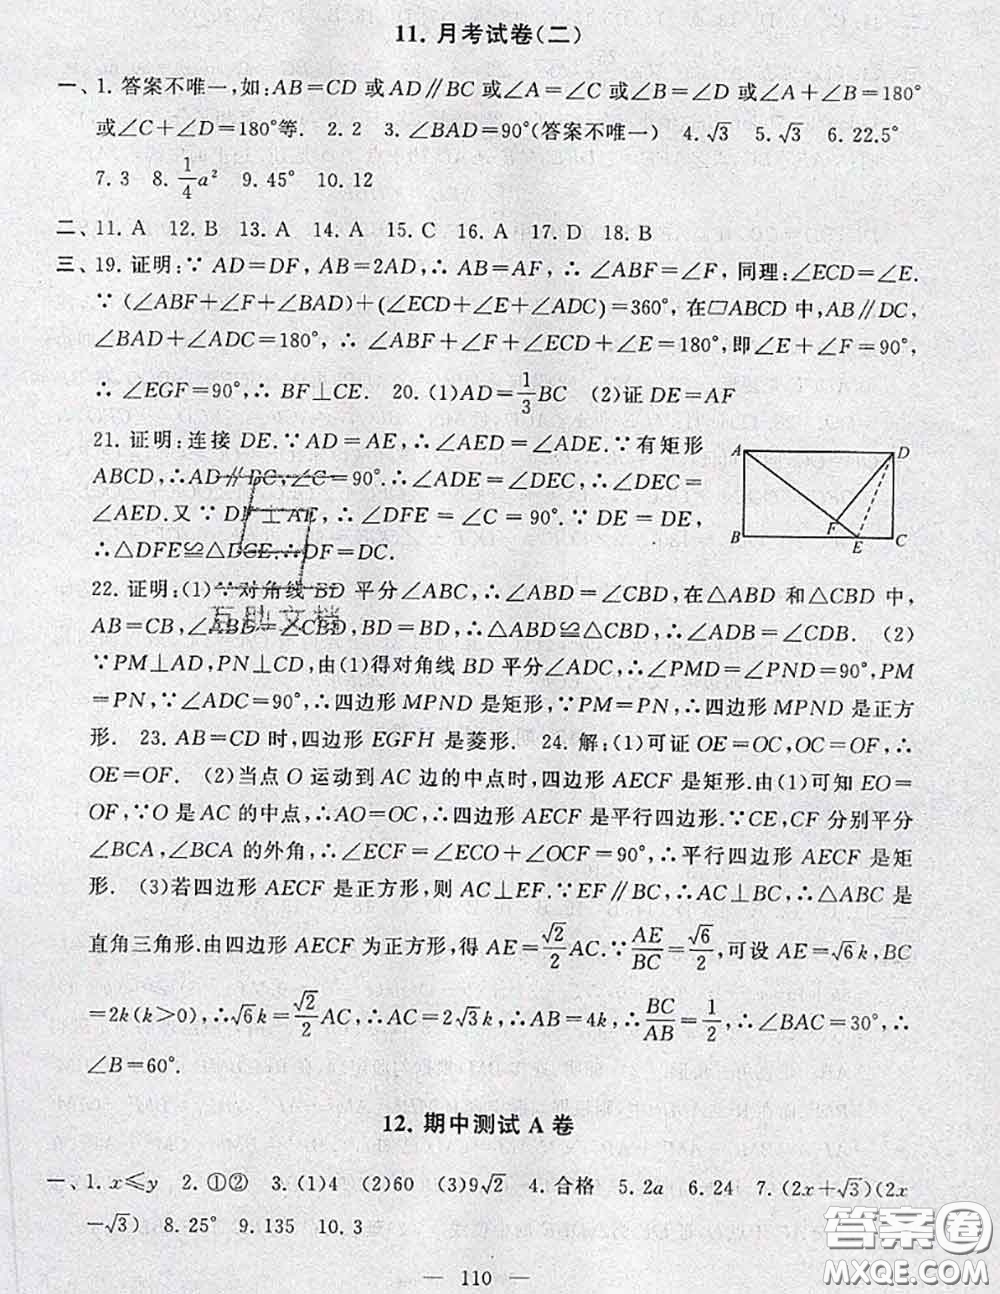 11. 月考试卷(二)
一、1. 答案不唯一,如:AB=CD 或 AD∥BC 或∠A=∠C 或∠B=∠D 或∠A+∠B=180°
或∠C+∠D=180°等. 2. 2 3. ∠BAD=90°(答案不唯一) 4. √3 5. √3 6. 22.5°
7. 3 8. 1/4 a² 9. 45° 10. 12
二、11. A 12. B 13. A 14. A 15. C 16. A 17. D 18. B
三、19. 证明:∵ AD=DF, AB=2AD,∴ AB=AF,∴∠ABF=∠F, 同理:∠ECD=∠E.
∵ (∠ABF+∠F+∠BAD)+(∠ECD+∠E+∠ADC)=360°, 在▱ABCD 中, AB∥DC,
∠BAD+∠ADC=180°, ∴ ∠ABF+∠F+∠ECD+∠E=180°, 即∠E+∠F=90°,
∴ ∠EGF=90°,∴ BF⊥CE. 20. (1)AD=1/3 BC (2)证 DE=AF
21. 证明:连接 DE.∵AD=AE,∴∠AED=∠ADE.∵有矩形
ABCD,∴AD∥BC,∠C=90°.∴∠ADE=∠DEC,∴∠DEC=
∠AED.又∵DF⊥AE,∴∠DFE=∠C=90°.∵DE=DE,
∴△DFE≌△DCE.∴DF=DC.
A D B F E C
22. 证明:(1)∵对角线 BD 平分∠ABC,∴∠ABD=∠CBD, 在△ABD 和△CBD 中,
AB=CB,∠ABD=∠CBD,BD=BD,∴△ABD≌△CBD,∴∠ADB=∠CDB. (2)
∵PM⊥AD,PN⊥CD,由(1)得对角线 BD 平分∠ADC,∴∠PMD=∠PND=90°,PM
=PN,∵∠ADC=90°,∴四边形 MPND 是矩形,∵PM=PN,∴四边形 MPND 是正方
形. 23. AB=CD 时,四边形 EGFH 是菱形. 24. 解:(1)可证 OE=OC,OC=OF,∴
OE=OF. (2)当点 O 运动到 AC 边的中点时,四边形 AECF 是矩形.由(1)可知 EO=
OF,∵O 是 AC 的中点,∴AO=OC,∴四边形 AECF 是平行四边形.∵CE,CF 分别平分
∠BCA,∠BCA 的外角,∴∠ECF=∠ECO+∠OCF=90°,∴平行四边形 AECF 是矩
形. (3)若四边形 AECF 是正方形,则 AC⊥EF.∵EF∥BC,∴AC⊥BC,∴△ABC 是
直角三角形.由四边形 AECF 为正方形,得 AE=√2/2 AC.∵AE/BC=√6/2,可设 AE=√6k,BC
=2k(k>0),∴√6k=√2/2 AC,∴AC=2√3k,∴AB=4k,∴BC/AB=1/2,∴∠BAC=30°,∴
∠B=60°.
互助文档
12. 期中测试 A 卷
一、1. x≤y 2. ①② 3. (1)4 (2)60 (3)9√2 4. 合格 5. 2a 6. 24 7. (2x+√3)(2x
−√3) 8. 25° 9. 135 10. 3
— 110 —
答案圈
MXQE.COM